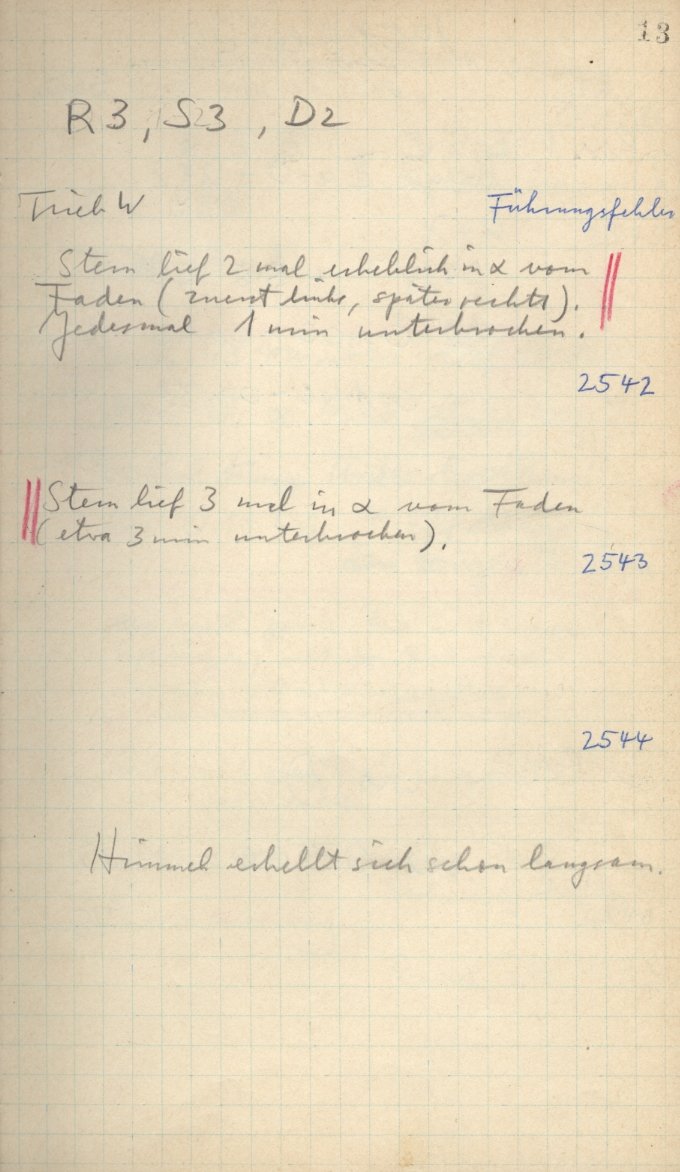 13
R3, S3, D2
Trieb W
Führungsfehler
Stern lief 2 mal erheblich in α vom
Faden (zuerst links, später rechts).
Jedesmal 1 min unterbrochen.
2542
Stern lief 3 mal in α vom Faden
(etwa 3 min unterbrochen).
2543
2544
Himmel erhellt sich schon langsam.